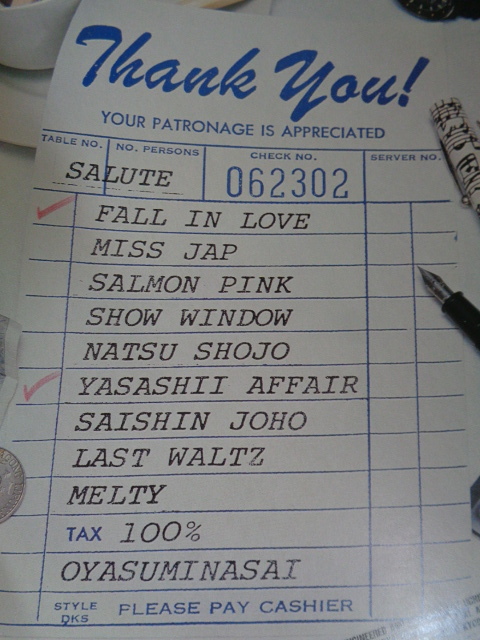 Thank You!
YOUR PATRONAGE IS APPRECIATED
TABLE NO. NO. PERSONS CHECK NO. SERVER NO.
SALUTE 062302
FALL IN LOVE
MISS JAP
SALMON PINK
SHOW WINDOW
NATSU SHOJO
YASASHII AFFAIR
SAISHIN JOHO
LAST WALTZ
MELTY
TAX 100%
OYASUMINASAI
STYLE DKS PLEASE PAY CASHIER